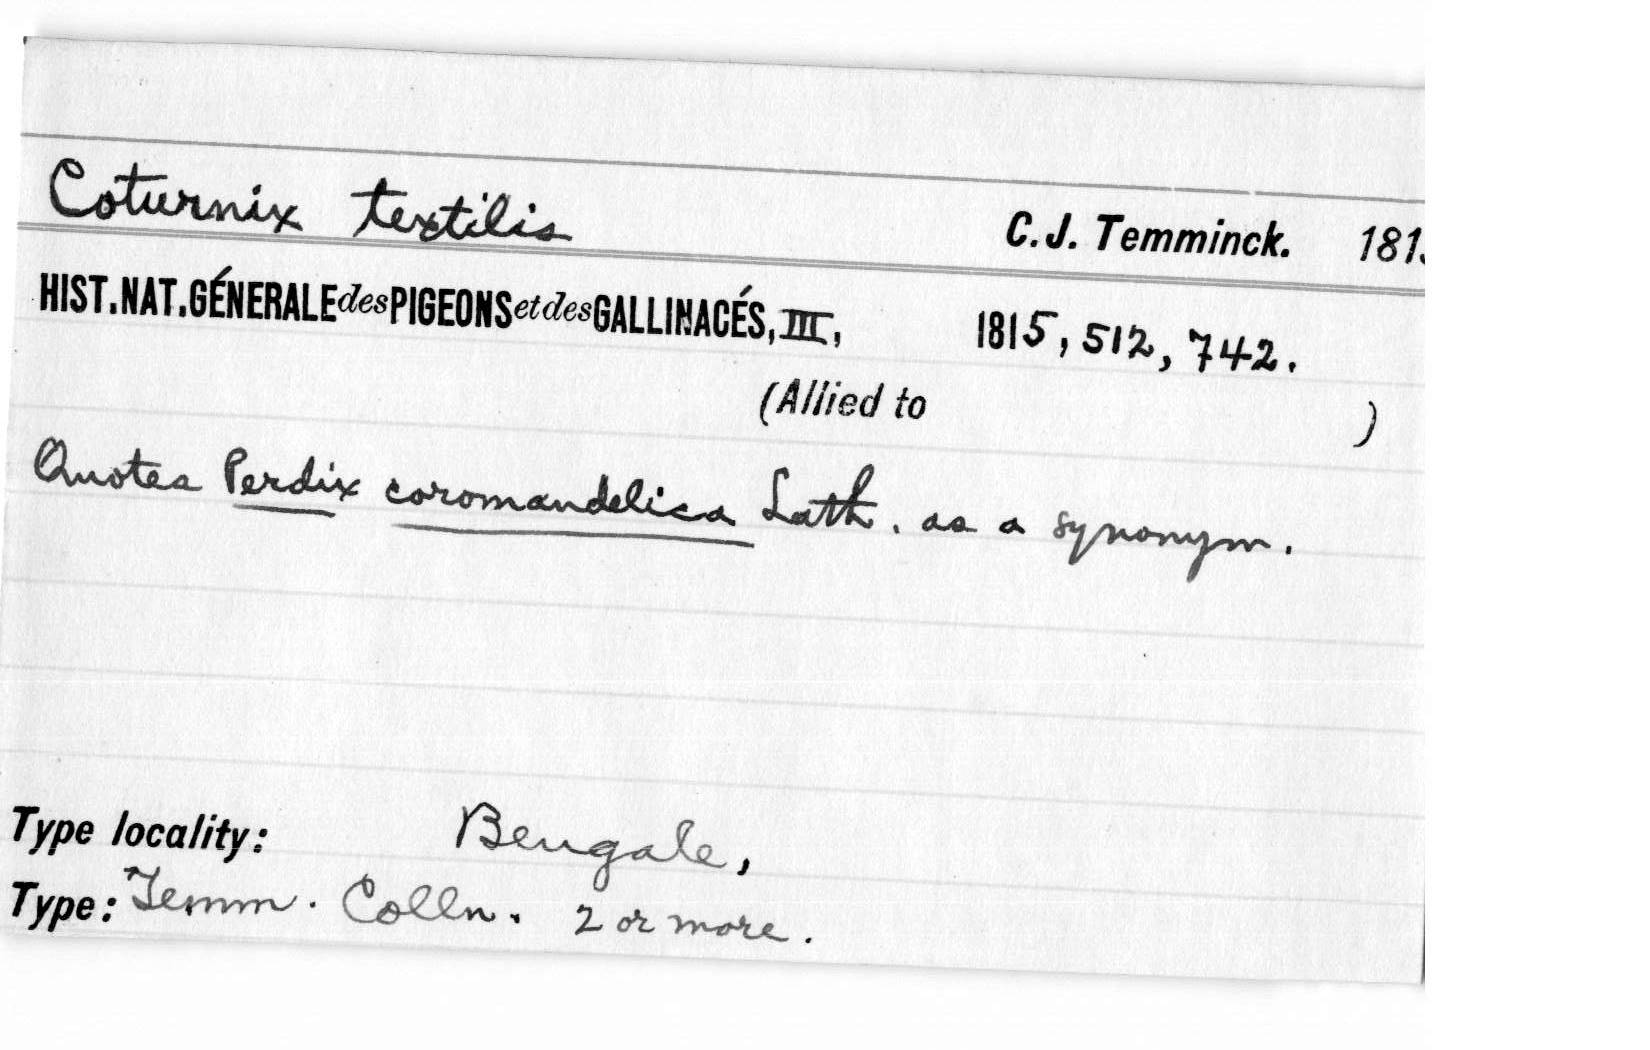 Coturnix textilis C.J. Temminck. 181
HIST.NAT.GÉNERALE des PIGEONS et des GALLINACÉS, III, 1815, 512, 742.
(Allied to )
Quotes Perdix coromandelica Lath. as a synonym.
Type locality: Bengale,
Type: Temm. Colln. 2 or more.